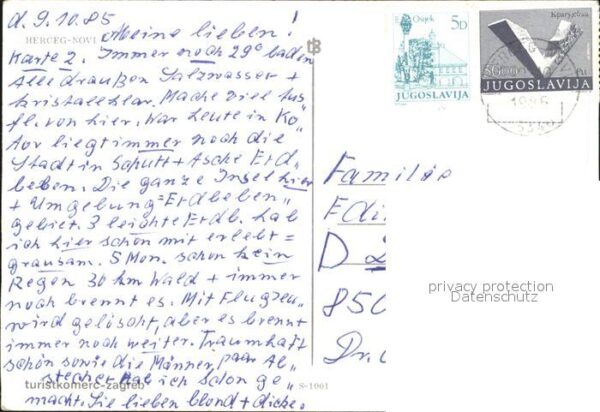 d. 9.10.85
Meine lieben!
HERCEG-NOVI
Karte 2. Immer noch 29° baden
Alle draußen Salzwasser +
kristallklar. Mache viel Aus„
fl. von hier. War heute in Ko„
tor liegt immer noch die
Stadt in Schutt + Asche Erd„
beben. Die ganze Insel hier
+ Umgebung = Erdbeben„
gebiet. 3 leichte Erdb. hab
ich hier schon mit erlebt =
grausam. 5 Mon. schon kein
Regen 30 km Wald + immer
noch brennt es. Mit Flugzeu„
wird gelöscht, aber es brennt
immer noch weiter. Traumhaft
schön sowie die Männer, paar Ab„
stecher hab ich schon ge„
macht. Sie lieben blond + dicke.
turistkomerc-zagreb
S-1001
Osijek
5D
JUGOSLAVIJA
JUGOSLAVIJA
Familie
Edi
D
850
Dr.
privacy protection
Datenschutz